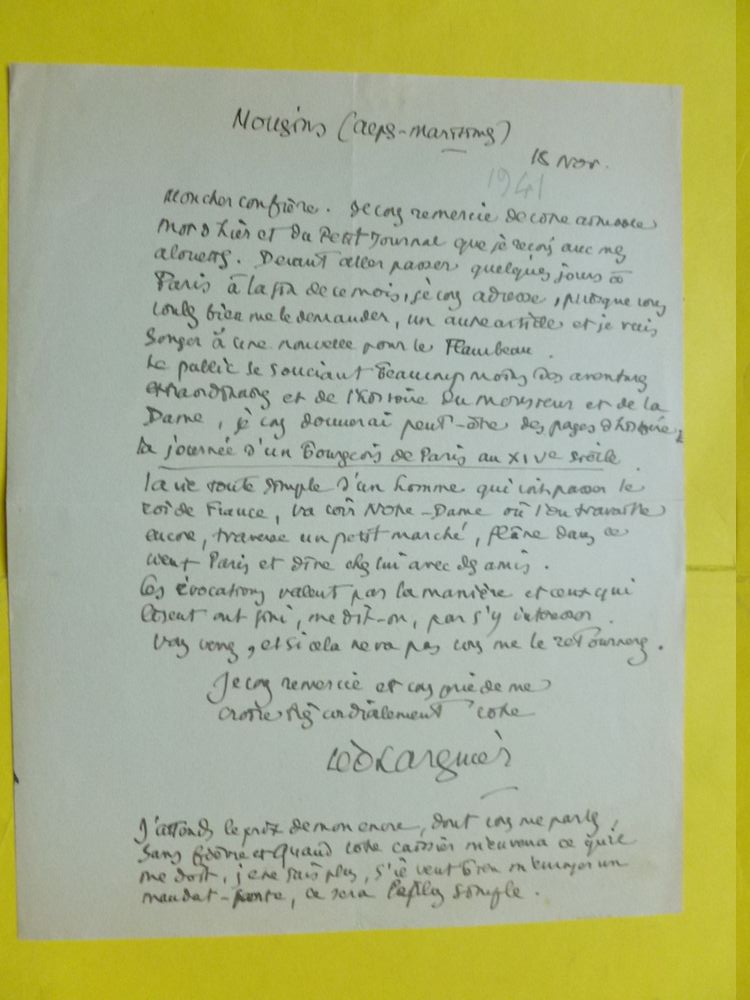 Mougins (Alpes-Maritimes)
15 Nov.
1941
Mon cher confrère. Je vous remercie de votre aimable
mot d'hier et du Petit Journal que je reçois avec mes
. Devant aller passer quelques jours à
Paris à la fin de ce mois, je vous adresse, puisque vous
voulez bien me le demander, un autre article et je vais
songer à une nouvelle pour le Flambeau.
Le public se souciant beaucoup moins des aventures
extraordinaires et de l'histoire du monsieur et de la
Dame, je vous donnerai peut-être des pages d'histoire,
la journée d'un Bourgeois de Paris au XIVe siècle
la vie toute simple d'un homme qui voit passer le
roi de France, va voir Notre-Dame où l'on travaille
encore, traverse un petit marché, flâne dans ce
vieux Paris et dîne chez lui avec des amis.
Ces évocations valent par la manière et ceux qui
lisent ont fini, me dit-on, par s'y intéresser.
Vous verrez, et si cela ne va pas vous me le retournerez.
Je vous remercie et vous prie de me
croire très cordialement votre
Léo Larguier
J'attends le prix de mon encre, dont vous me parlez,
sans fièvre et quand votre caissier m'enverra ce qu'il
me doit, je ne sais plus, s'il veut bien m'envoyer un
mandat-carte, ce sera le plus simple.